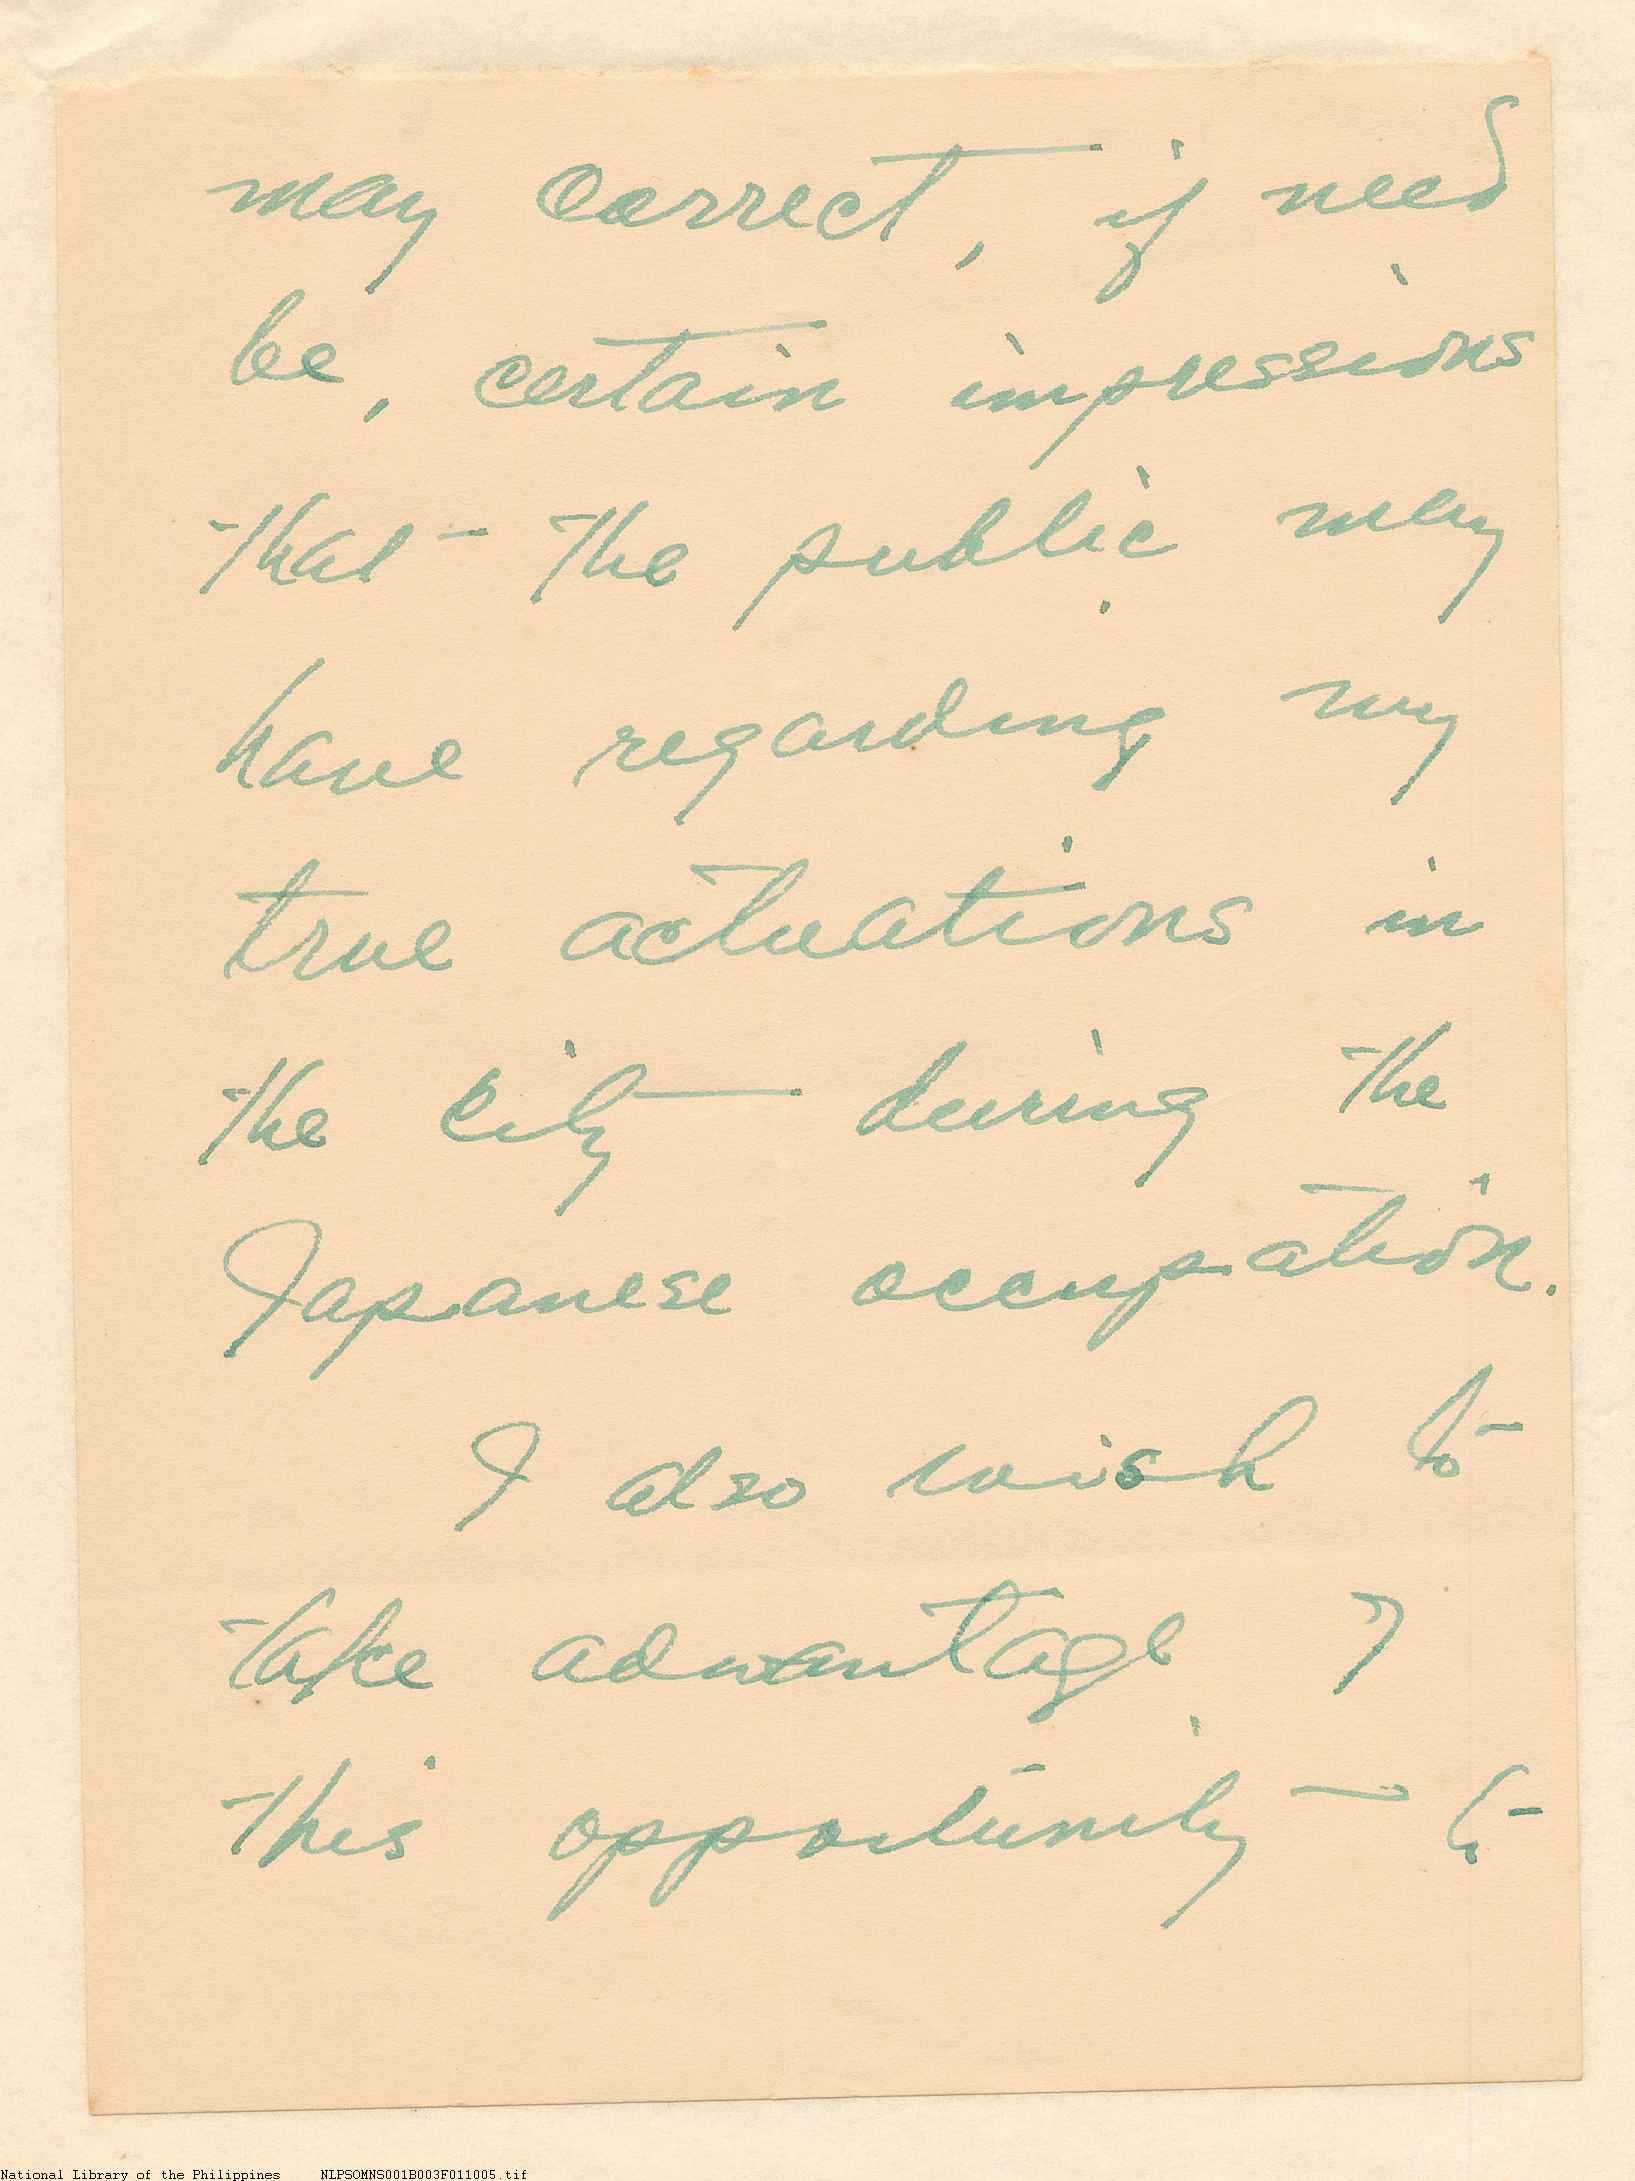 may correct, if need
be, certain impressions
that the public may
have regarding my
true actuations in
the city during the
Japanese occupation.
I also wish to
take advantage of
this opportunity to
National Library of the Philippines NLPSOMNS001B003F011005.tif